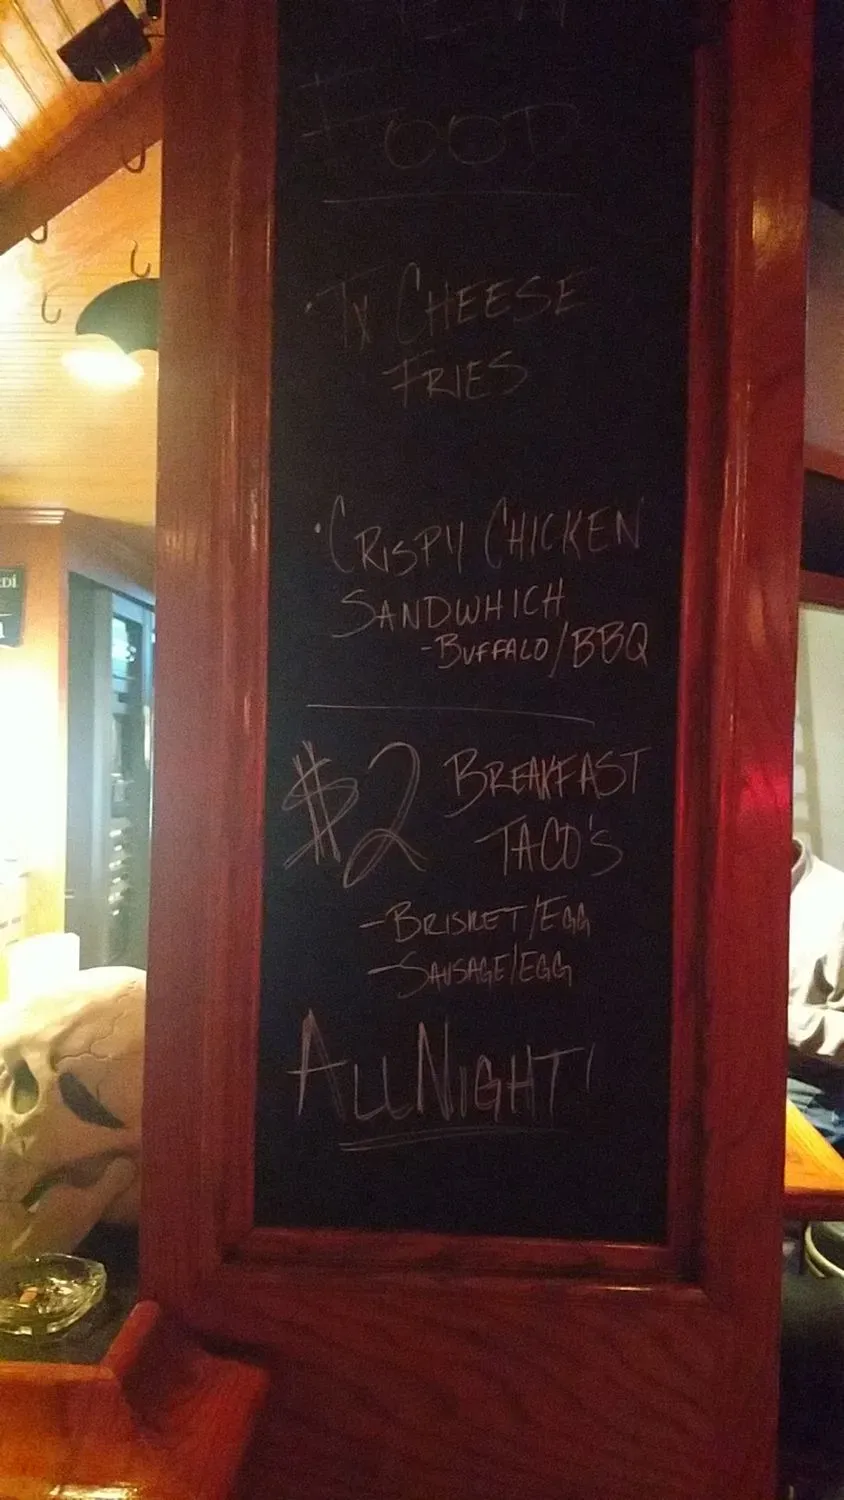 FOOD
· TX CHEESE
FRIES
· CRISPY CHICKEN
SANDWHICH
-BUFFALO/BBQ
$2 BREAKFAST
TACO'S
-BRISKET/EGG
-SAUSAGE/EGG
ALLNIGHT!